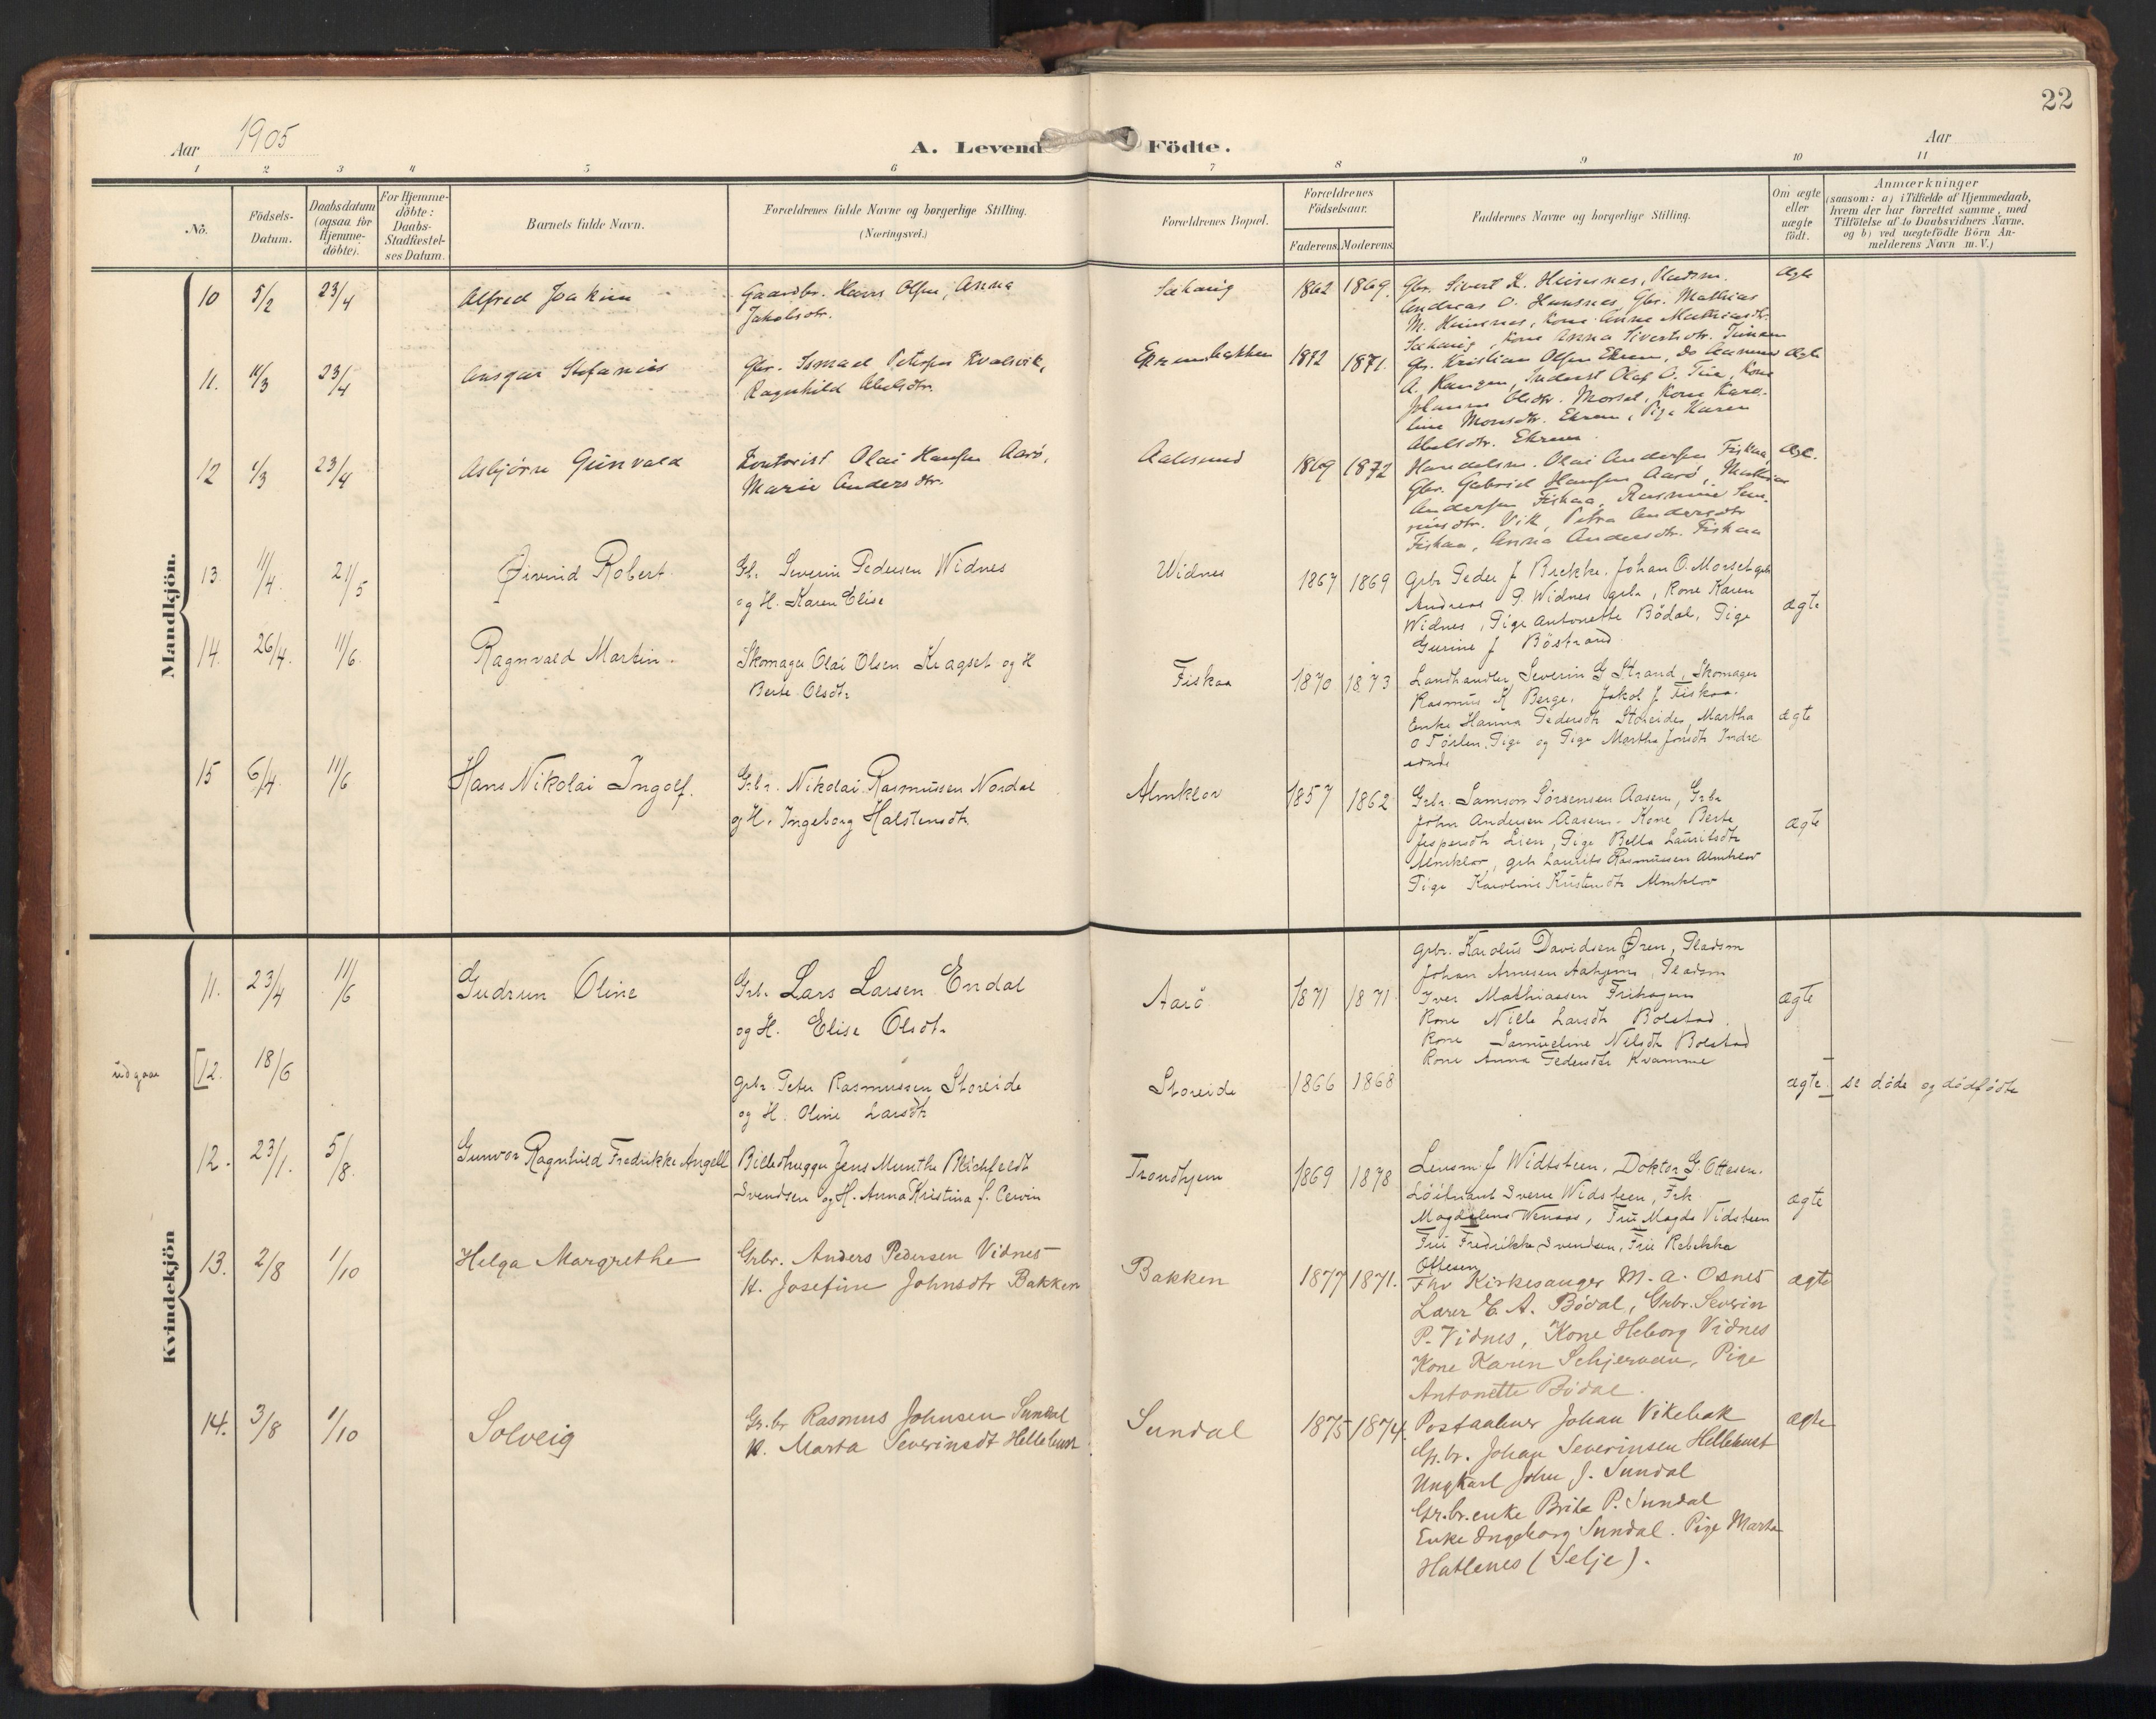 22
Aar 1905
A. Levende Födte.
Aar
1 2 3 4 5 6 7 8 9 10 11
No.
Födsels-Datum.
Daabsdatum (ogsaa for Hjemme-döbte).
For Hjemme-döbte: Daabs-Stadfæstel-ses Datum.
Barnets fulde Navn.
Forældrenes fulde Navne og borgerlige Stilling.
(Næringsvei.)
Forældrenes Bopæl.
Forældrenes Födselsaar.
Faderens. Moderens.
Faddernes Navne og borgerlige Stilling.
Om ægte eller uægte födt.
Anmærkninger
(saasom: a) i Tilfælde af Hjemmedaab,
hvem der har forrettet samme, med
Tilföielse af to Daabsvidners Navne.
og b) ved uægtefödte Börn An-
melderens Navn m. V.)
Mandkjön.
10 5/2 23/4 Alfred Joakim
Gaardbr. Hans Olsen, Anna
Jakobsdtr.
1862 1869.
Gbr. Sivert K. Hunsnes, Pladsm.
Andreas O. Hunsnes, Gbr. Mathias
M. Hunsnes, Kone Anne Mathiasdtr.
Kone Anna Sivertsdtr.
ægte
11. 11/3 23/4 Ansgar Stefanius
Gbr. Ismael Petersen Kvalsvik,
Ragnhild Abelsdtr.
Ekrembakken
1871.
Gbr. Kristian Olsen Ekrem, do Rasmus
A. Hauzen, Olaf O. Kone
Johanne Olsdtr. Morset, Kone Karo-
line Monsdtr. Ekrem, Pige Karen
Abelsdtr. Ekrem.
ægte
12 1/3 23/4 Asbjørn Gunvald
Kontorist Olai Hansen Aarö,
Marie Andersdtr.
Aalesund
1869 1872
Handelsm. Olai Andersen Fiskaa,
Gbr. Gabriel Hansen Aarö, Mathias
Andersen Fiskaa, Rasmine
Vik, Petra Andersdtr
Fiskaa, Anna Andersdtr. Fiskaa
ægte.
13 11/4. 21/5 Øivind Robert.
Gb. Severin Pedersen Widnes
og H. Karen Elise
Widnes
1867 1869
Grbr Peder J Brekke. Johan O. Morset grbr
Andreas P. Widnes grbr, Kone Karen
Widnes, Pige Antonette Bödal, Pige
Gurine J Böstrand.
ægte
14. 26/4. 11/6. Ragnvald Martin.
Skomager Olai Olsen Kragset og H
Berte Olsdtr
Fiskaa
1870 1873
Landhandler Severin G Strand, Skomager
Rasmus K Berge, Jakob J Fiskaa.
Enke Hanna Pedersdtr Storeide, Martha
O Förlen, Pige og Pige Martha Jonsdtr Indre
eide
ægte
15 6/4. 11/6 Hans Nikolai Ingolf.
Grbr. Nikolai Rasmussen Nordal
og H. Ingeborg Halstensdtr
Almklov
1857 1862
Grbr. Samson Sörensen Aasen, Grbr
John Andersen Aasen. Kone Berte
Jespersdtr Lien, Pige Bella Lauritsdtr
Almklov, grb Laurits Rasmussen Almklov
Pige Karoline Kristensdtr Almklov
ægte
Kvindekjön
11. 23/4 11/6 Gudrun Oline
Grbr Lars Larsen Endal
og H. Elise Olsdtr
Aarö
1871 1871
Grbr. Karolus Davidsen Øren, Pladsm
Johan Arnesen Aahjem, Pladsm
Iver Mathiassen Frihagen
Kone Nille Larsdtr Bolstad.
Kone Samueline Nilsdtr Bolstad
Kone Anna Pedersdtr Kvamme
ægte
udgaar [12. 18/6
grbr Peter Rasmussen Storeide
og H. Oline Larsdtr
Storeide
1866 1868
ægte.] se döde og dödfödte
12. 23/1. 5/8. Gunvor Ragnhild Fredrikke Angell
Billedhugger Jens Munthe Blichfeldt
Svendsen og H. Anna Kristina f. Cervin
Trondhjem
1869 1878
Lensm. J Widtsteen, Doktor G. Ottesen.
Löitnant Sverre Widsteen, Frk
Magdalene Wenaas, Fru Magda Vidsteen
Fru Fredrikke Svendsen, Fru Rebekka
Ottesen
ægte
13. 2/8 1/10 Helga Margrethe
Grbr. Anders Pedersen Vidnes
H. Josefine Johnsdtr Bakken
Bakken
1877 1871.
Fhv Kirkesanger M. A. Osnes
Lærer E. A. Bödal, Grbr. Severin
P. Vidnes, Kone Heborg Vidnes
Kone Karen Schjervau, Pige
Antonette Bödal.
ægte
14. 3/8 1/10 Solveig
Gr.br Rasmus Johnsen Sundal
H. Marta Severinsdt Hellebust
Sundal
1875 1874.
Postaabner Johan Vikebak
Gr.br. Johan Severinsen Hellebust
Ungkarl John J. Sundal
Gr.br.enke Brita P. Sundal
Enke Ingeborg Sundal. Pige Marta
Hatlenes (Selje).
ægte